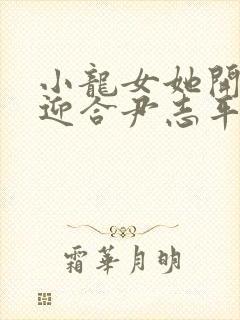 小龍女她開
迎合尹志平
霜華月明